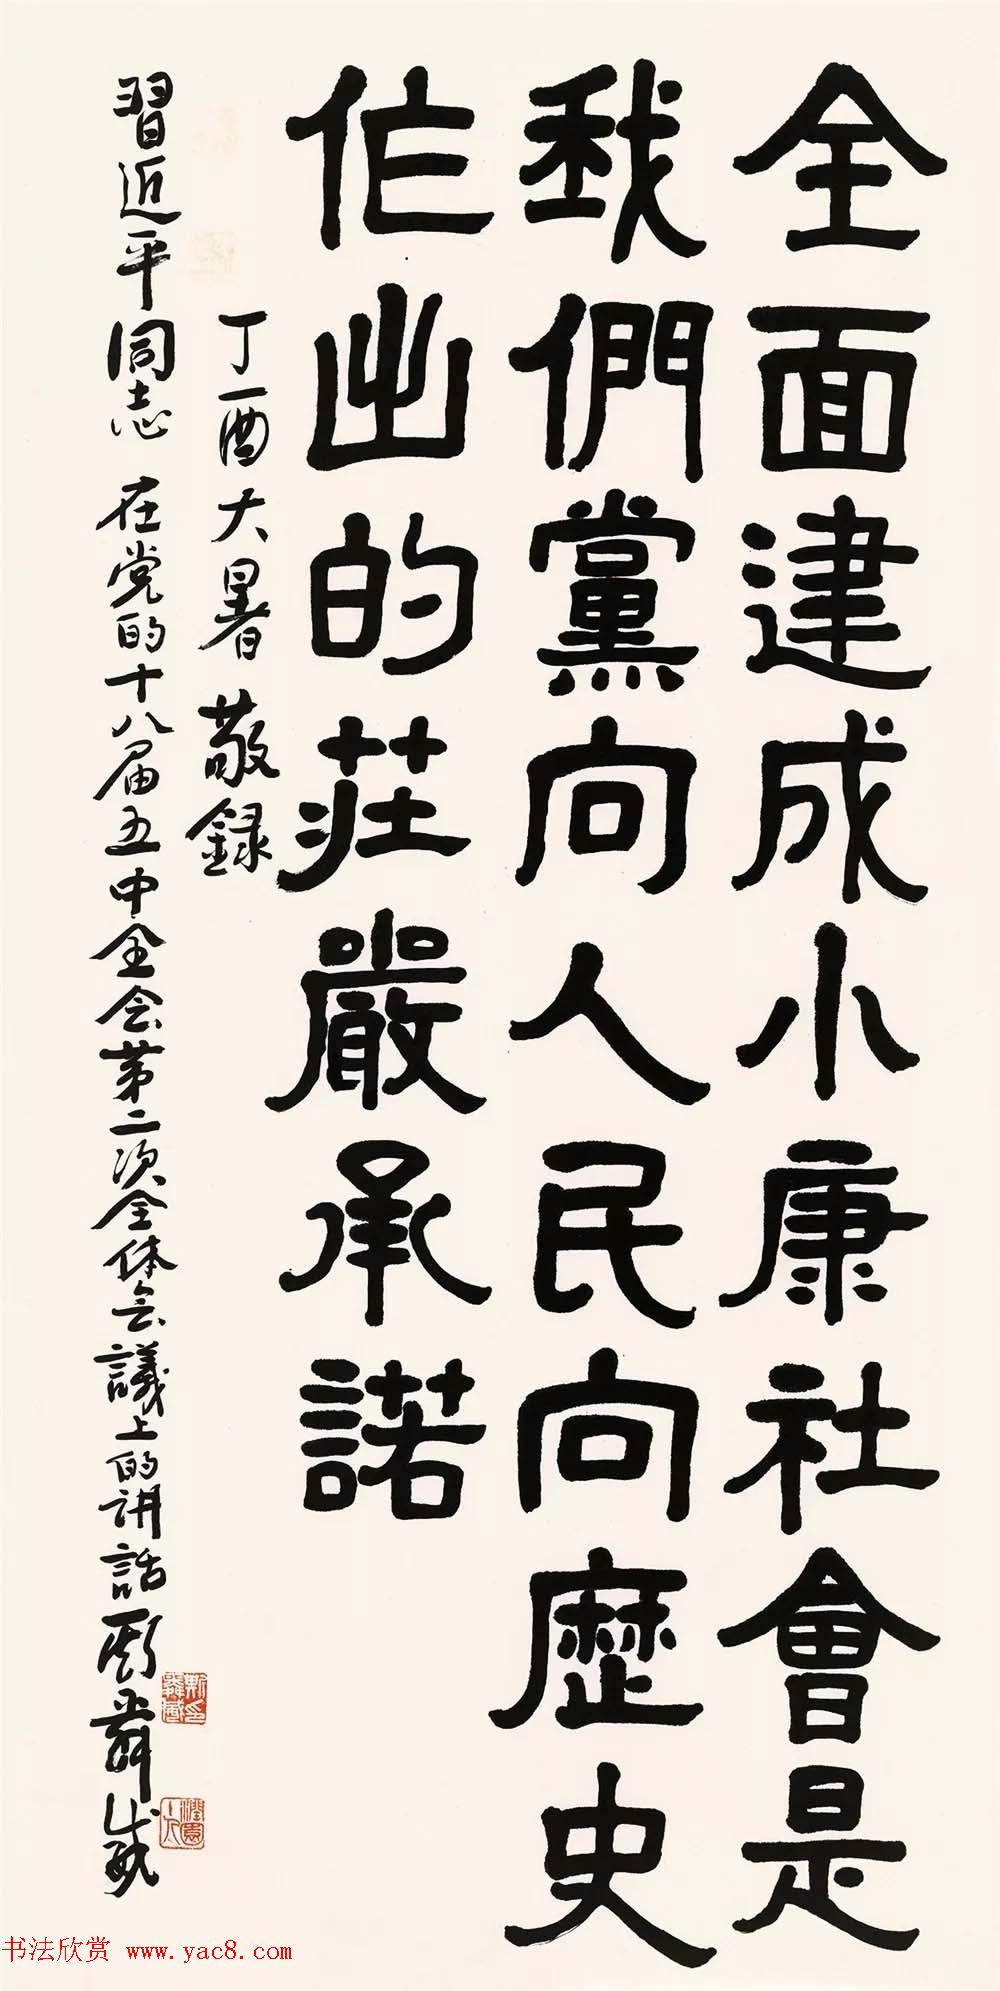 全面建成小康社會是
我們黨向人民向歷史
作出的莊嚴承諾
丁酉大暑敬録
習近平同志在党的十八届五中全会第二次全体会議上的讲話
书法欣赏 www.yac8.com